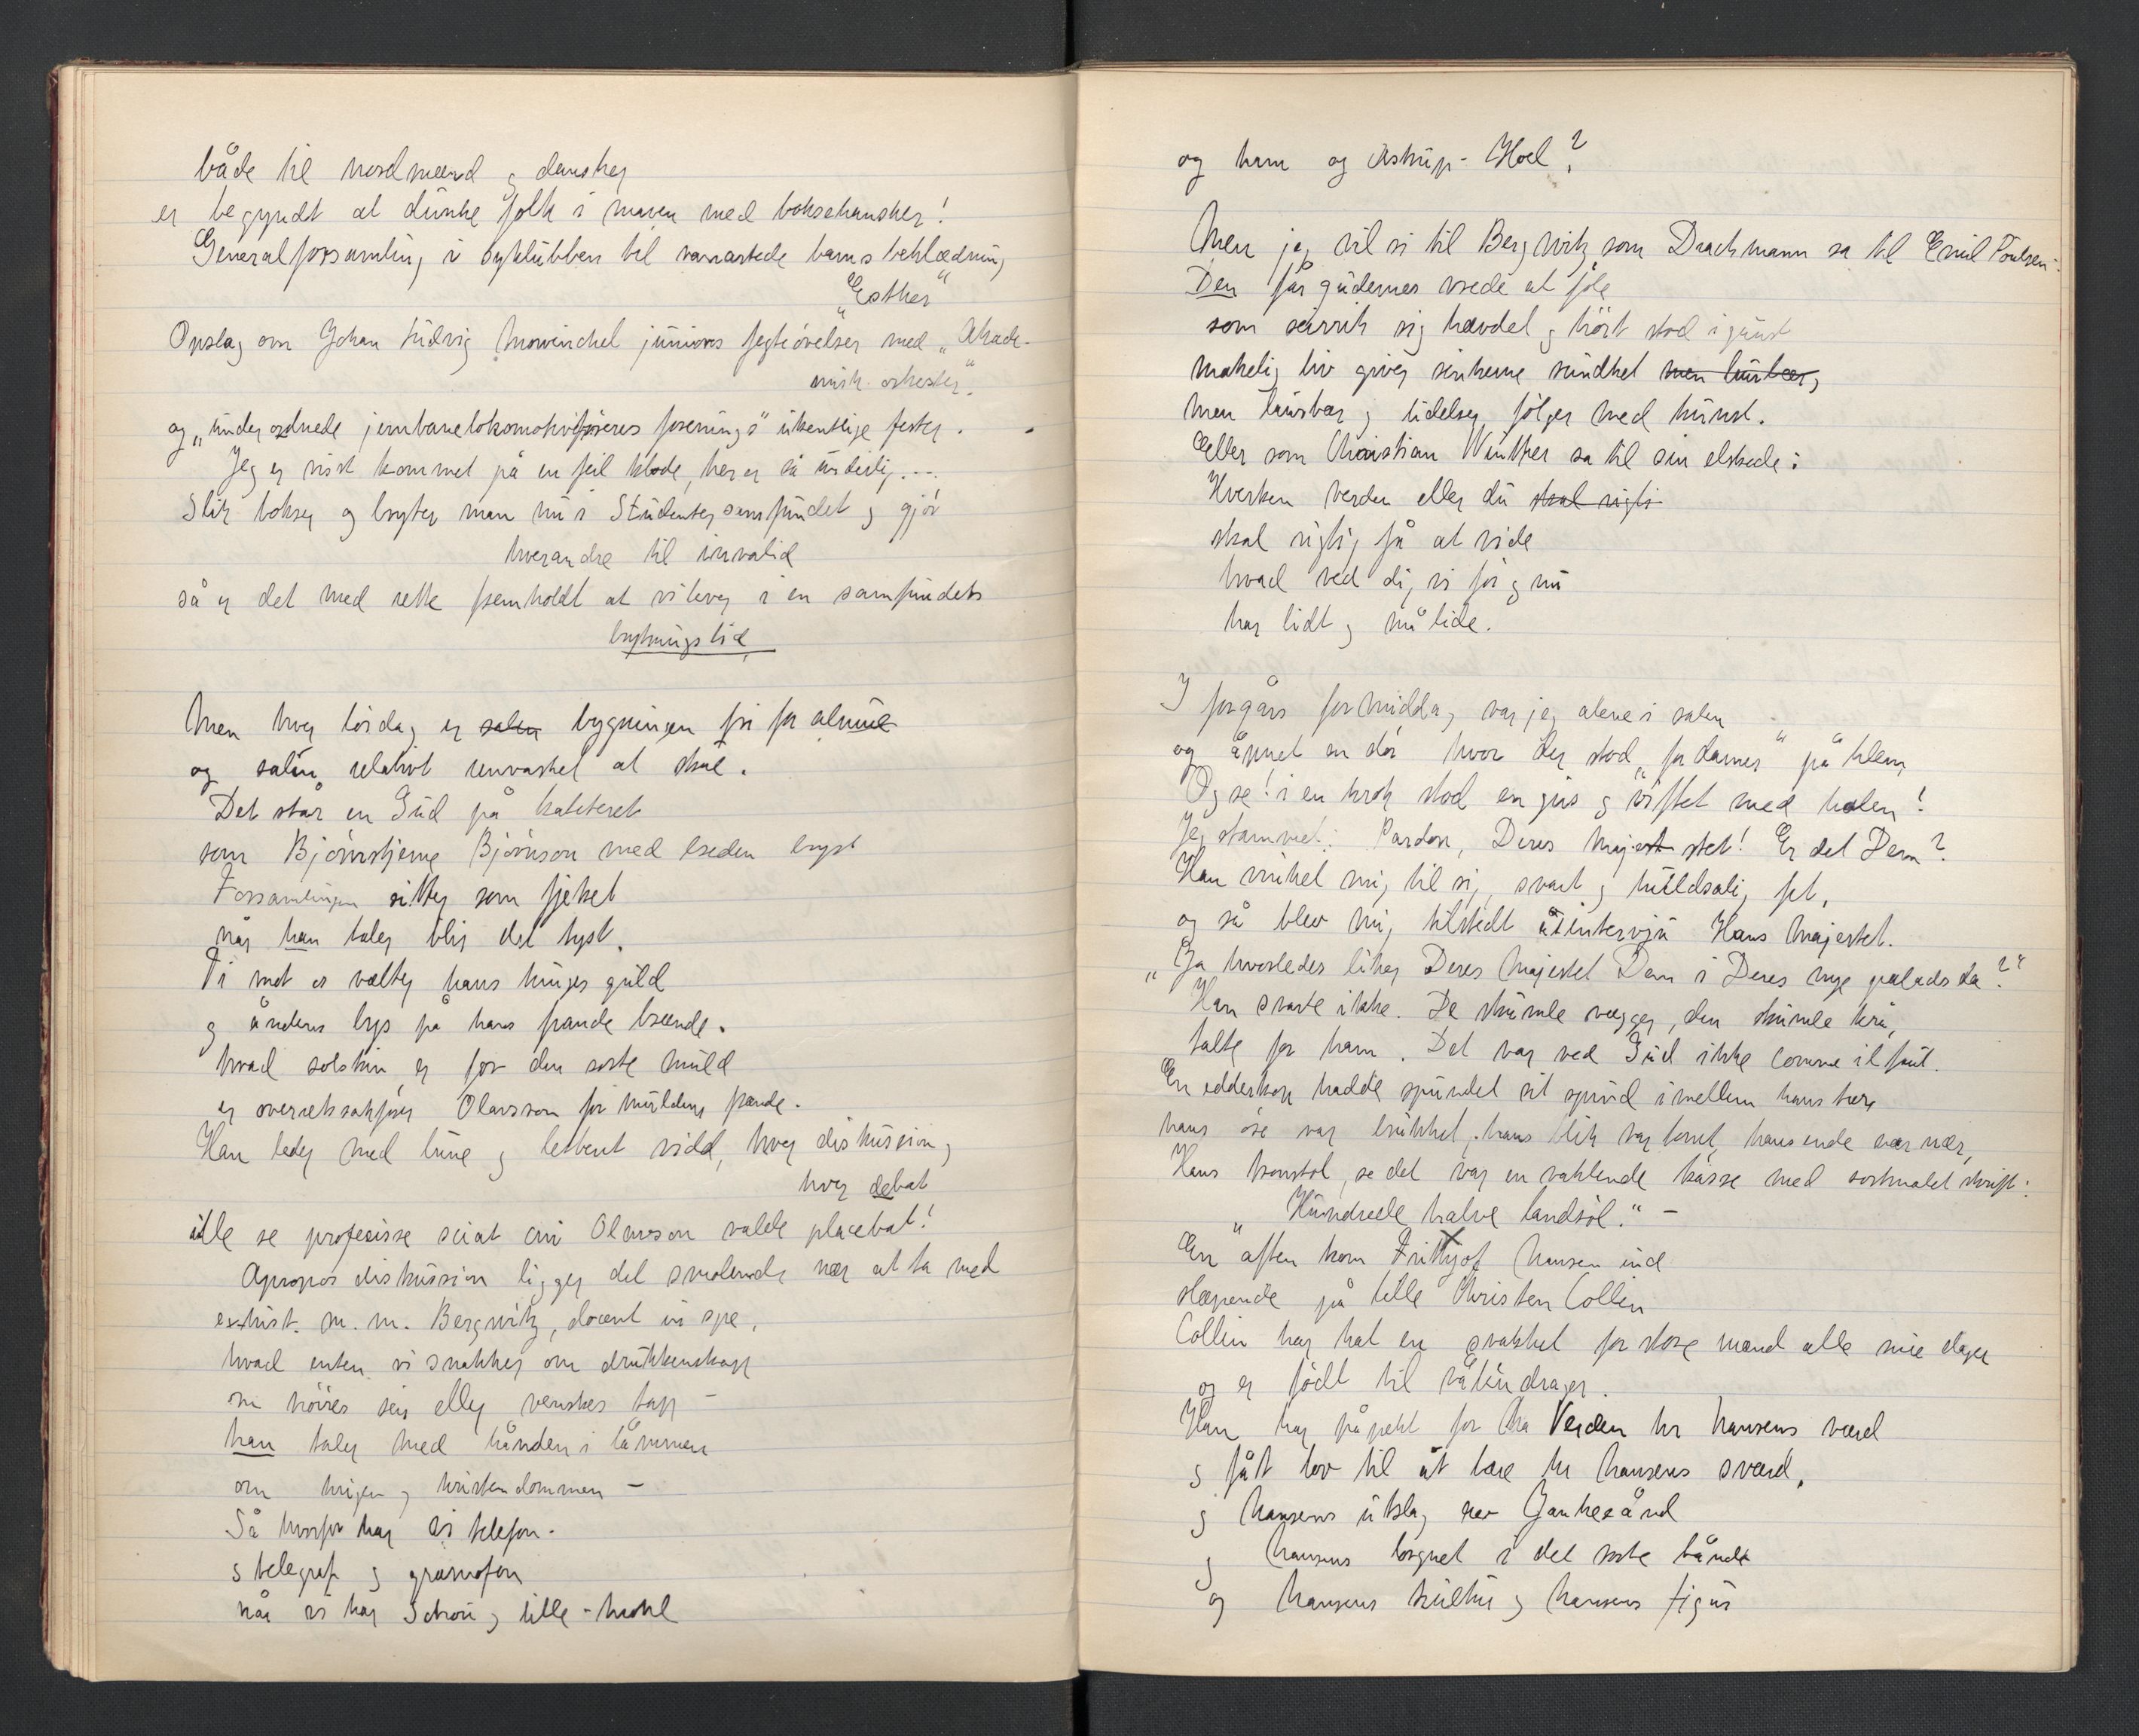 både til nordmænd og dansker
er begyndt at dunke folk i maven med boksehansker!
Generalforsamling i syklubben til vanartede barns beklædning
"Esther"
Opslag om Johan Ludvig Mowinckel juniors fegteövelser med "Akade-
misk orkester"
og "underordnede jernbanelokomotivföreres forenings" ukentlige fester.
Jeg er visst kommet på en feil klode, her er så urdeilig...
Slik bokser og bryter man nu i Studentersamfundet og gjör
hverandre til invalid
så er det med rette fremholdt at vi lever i en samfundets
brytningstid
Men hver lördag er salen bygningen fri for almue
og salen relativt renvasket at skue.
Det står en Gud på kateteret
som Björnstjerne Björnson med breden bryst
Forsamlingen sitter som fjetret
når han taler blir det tyst.
Ti mot os vælter hans tunges guld
og åndens lys på hans pande brænde.
hvad solskin er for den sorte muld
er overretssakförer Olavsson for muldens frænde.
Han leder med lune og letbent vidd, hver diskusion,
hver debat
ille se profecisse sciat cui Olavson valde placebat!
Apropos diskussion ligger det snublende nær at ta med
exhist. m. m. Bergwitz, docent in spe,
hvad enten vi snakker om drukkenskap
om höires seir eller venstres tap –
han taler med hånden i lommen
om krigen og kristendommen –
Så hvorfor har vi telefon.
og telegraf og gramofon
når vi har Schou og lille-Krohl
og ham og Astrup-Hoel?
Men jeg vil si til Bergwitz som Drachmann sa til Emil Poulsen:
Den får gudernes vrede at föle
som seirrik sig hævdet og höit stod i gunst
makelig liv giver sinkerne sundhet men laurbær,
men laurbær og lidelser fölger med kunst.
Eller som Christian Winther sa til sin elskede:
Hverken verden eller du skal rigti
skal rigtig få at vide
hvad ved dig vi för og nu
har lidt og må lide.
I forgårs formiddag var jeg alene i salen
og åpnet en dör hvor der stod "for damer" på klem,
Og se! i en krok stod en gris og viftet med halen!
Jeg stammet: Pardon, Deres Majestet! Er det Dem?
Han vinket mig til sig, svart og huldsalig fet,
og så blev mig tilstedt at intervju Hans Majestet.
"Ja hvorledes liker Deres Majestet Dem i Deres nye palads da?"
Han svarte ikke. De skumle vægger, den skumle krå,
talte for ham. Det var ved Gud ikke comme il faut.
En edderkop hadde spundet sit spind imellem hans tær
hans öie var brukket, hans blik var tomt, hans ende var nær,
Hans kongstol, se det var en vaklende kasse med sortmalet skrift:
"Hundrede halve landsöl." –
En aften kom Frithjof Hansen ind
slæpende på lille Christen Collin
Collin har hat en svakhet for store mænd alle sine dager
og er född til våbendrager.
Han har påpekt for Verden hr Hansens værd
og fåt lov til at bære hr Hansens sværd,
og Hansens utslag av Jankeeånd
og Hansens lorgnet i det sorte bånd
og Hansens kultur og Hansens figur